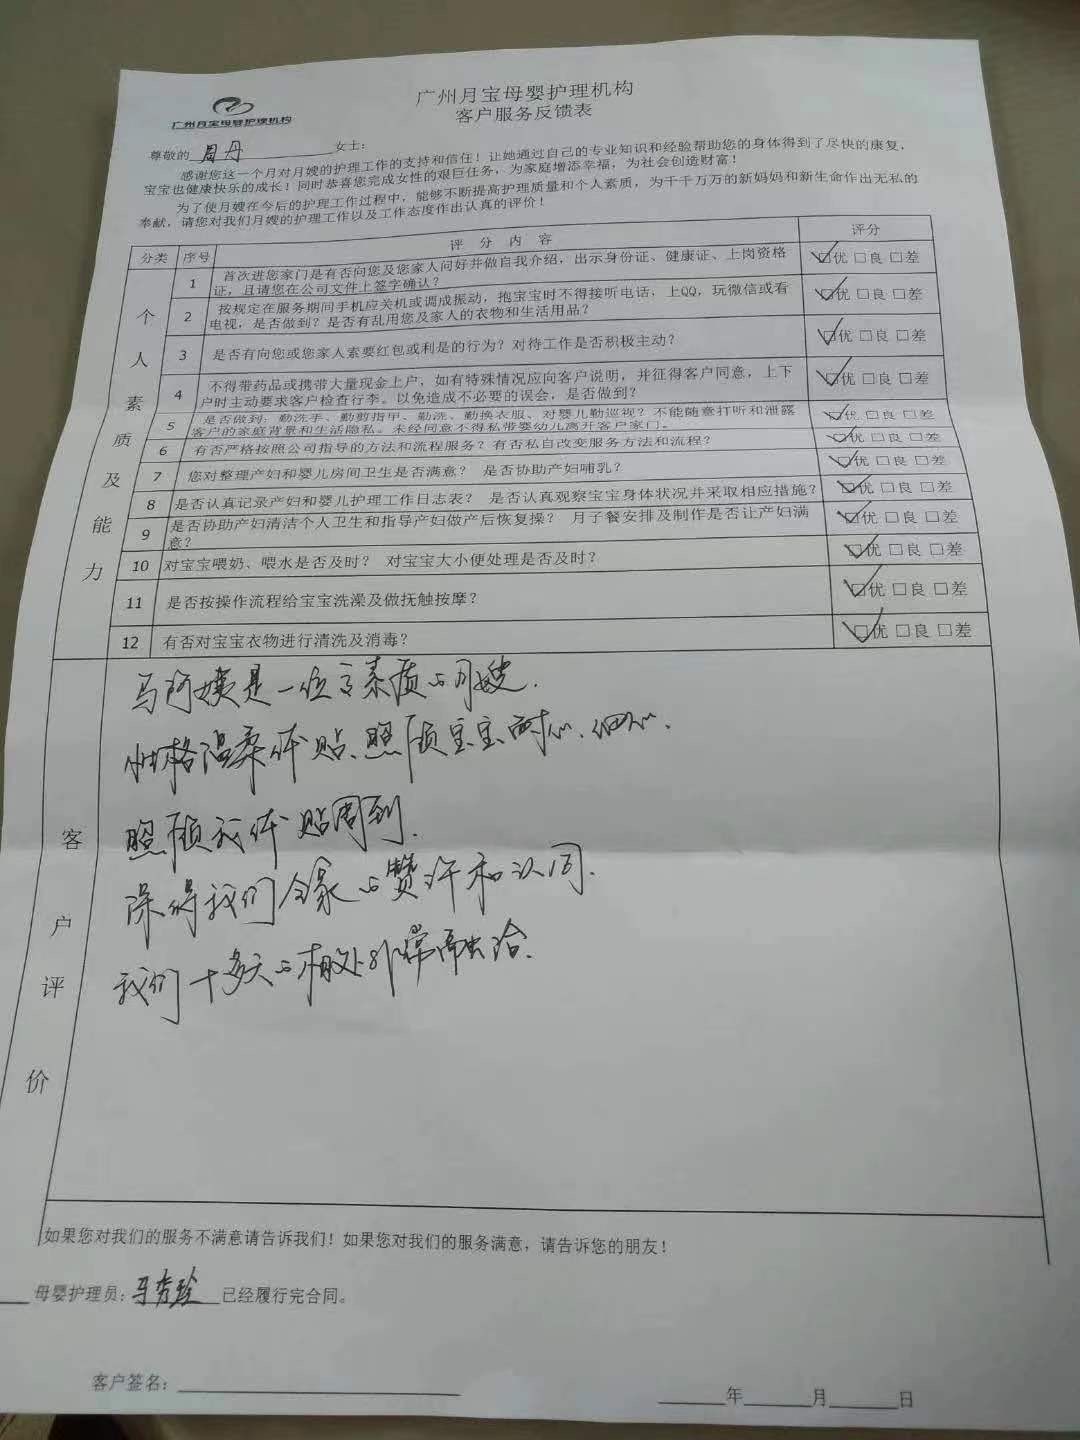 广州月宝母婴护理机构
广州月宝母婴护理机构
客户服务反馈表
尊敬的 周丹 女士：
感谢您这一个月对月嫂的护理工作的支持和信任！让她通过自己的专业知识和经验帮助您的身体得到了尽快的康复，
宝宝也健康快乐的成长！同时恭喜您完成女性的艰巨任务，为家庭增添幸福，为社会创造财富！
为了使月嫂在今后的护理工作过程中，能够不断提高护理质量和个人素质，为千千万万的新妈妈和新生命作出无私的
奉献，请您对我们月嫂的护理工作以及工作态度作出认真的评价！
分类 序号 评分内容 评分
个人素质及能力
1 首次进您家门是有否向您及您家人问好并做自我介绍，出示身份证、健康证、上岗资格
证，且请您在公司文件上签字确认？ ☑优 □良 □差
2 按规定在服务期间手机应关机或调成振动，抱宝宝时不得接听电话，上QQ，玩微信或看
电视，是否做到？是否有乱用您及家人的衣物和生活用品？ ☑优 □良 □差
3 是否有向您或您家人索要红包或利是的行为？对待工作是否积极主动？ ☑优 □良 □差
4 不得带药品或携带大量现金上户，如有特殊情况应向客户说明，并征得客户同意，上下
户时主动要求客户检查行李。以免造成不必要的误会，是否做到？ ☑优 □良 □差
5 是否做到：勤洗手、勤剪指甲、勤洗、勤换衣服、对婴儿勤巡视？不能随意打听和泄露
客户的家庭背景和生活隐私。未经同意不得私带婴幼儿离开客户家门。 ☑优 □良 □差
6 有否严格按照公司指导的方法和流程服务？有否私自改变服务方法和流程？ ☑优 □良 □差
7 您对整理产妇和婴儿房间卫生是否满意？ 是否协助产妇哺乳？ ☑优 □良 □差
8 是否认真记录产妇和婴儿护理工作日志表？ 是否认真观察宝宝身体状况并采取相应措施？ ☑优 □良 □差
9 是否协助产妇清洁个人卫生和指导产妇做产后恢复操？ 月子餐安排及制作是否让产妇满
意？ ☑优 □良 □差
10 对宝宝喂奶、喂水是否及时？ 对宝宝大小便处理是否及时？ ☑优 □良 □差
11 是否按操作流程给宝宝洗澡及做抚触按摩？ ☑优 □良 □差
12 有否对宝宝衣物进行清洗及消毒？ ☑优 □良 □差
客户评价
马阿姨是一位高素质的月嫂.
性格温柔体贴、照顾宝宝耐心、细心.
照顾我体贴周到.
深得我们全家的赞许和认同.
我们十多天的相处非常融洽.
如果您对我们的服务不满意请告诉我们！如果您对我们的服务满意，请告诉您的朋友！
母婴护理员：马秀珍 已经履行完合同。
客户签名：
年 月 日